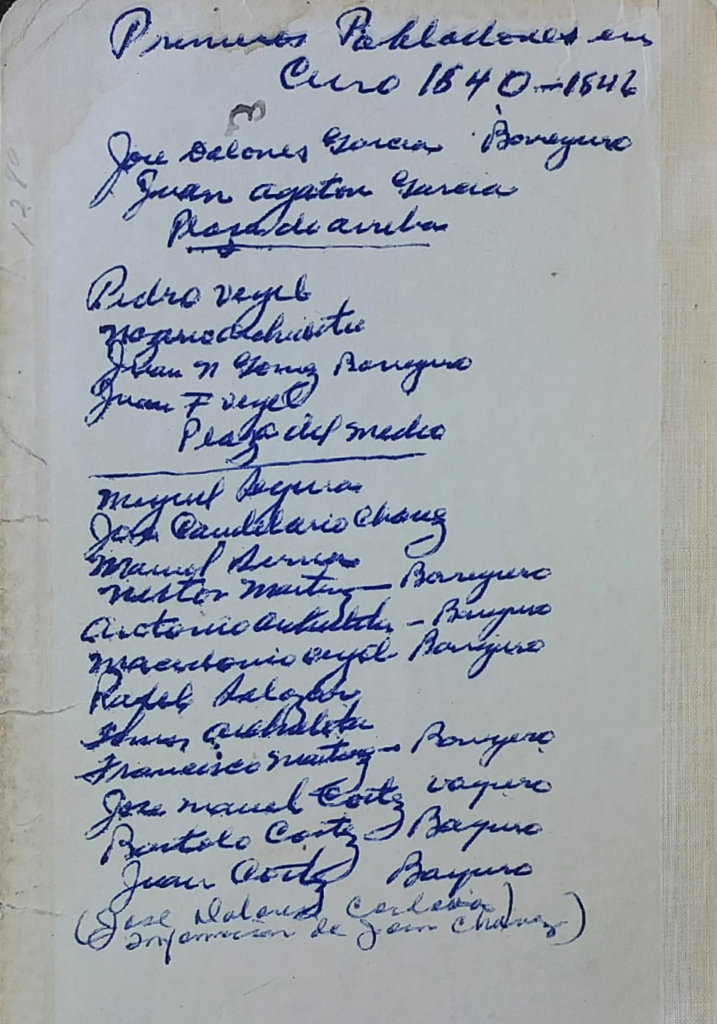 Primeros Pobladores en
Curo 1840-1846
3
Jose Dolores Garcia Borreguro
Juan Agaton Garcia
Plaza de arriba
Pedro Vegil
Juan N Gomez Borreguro
Juan F Vegil
Plaza del medio
Miguel Segura
Jose Candelario Chavez
Manuel Serna
Nestor Martinez - Borreguro
Antonio Archuleta - Baquero
Macedonio Vegil Borreguro
Rafel Salazar
Archuleta
Francisco Martinez - Borreguero
Jose Manuel Cortez vaquero
Bartolo Cortez Baquero
Juan Cortez Baquero
(Jose Dolores Cordova)
Informacion de Jose Chavez)